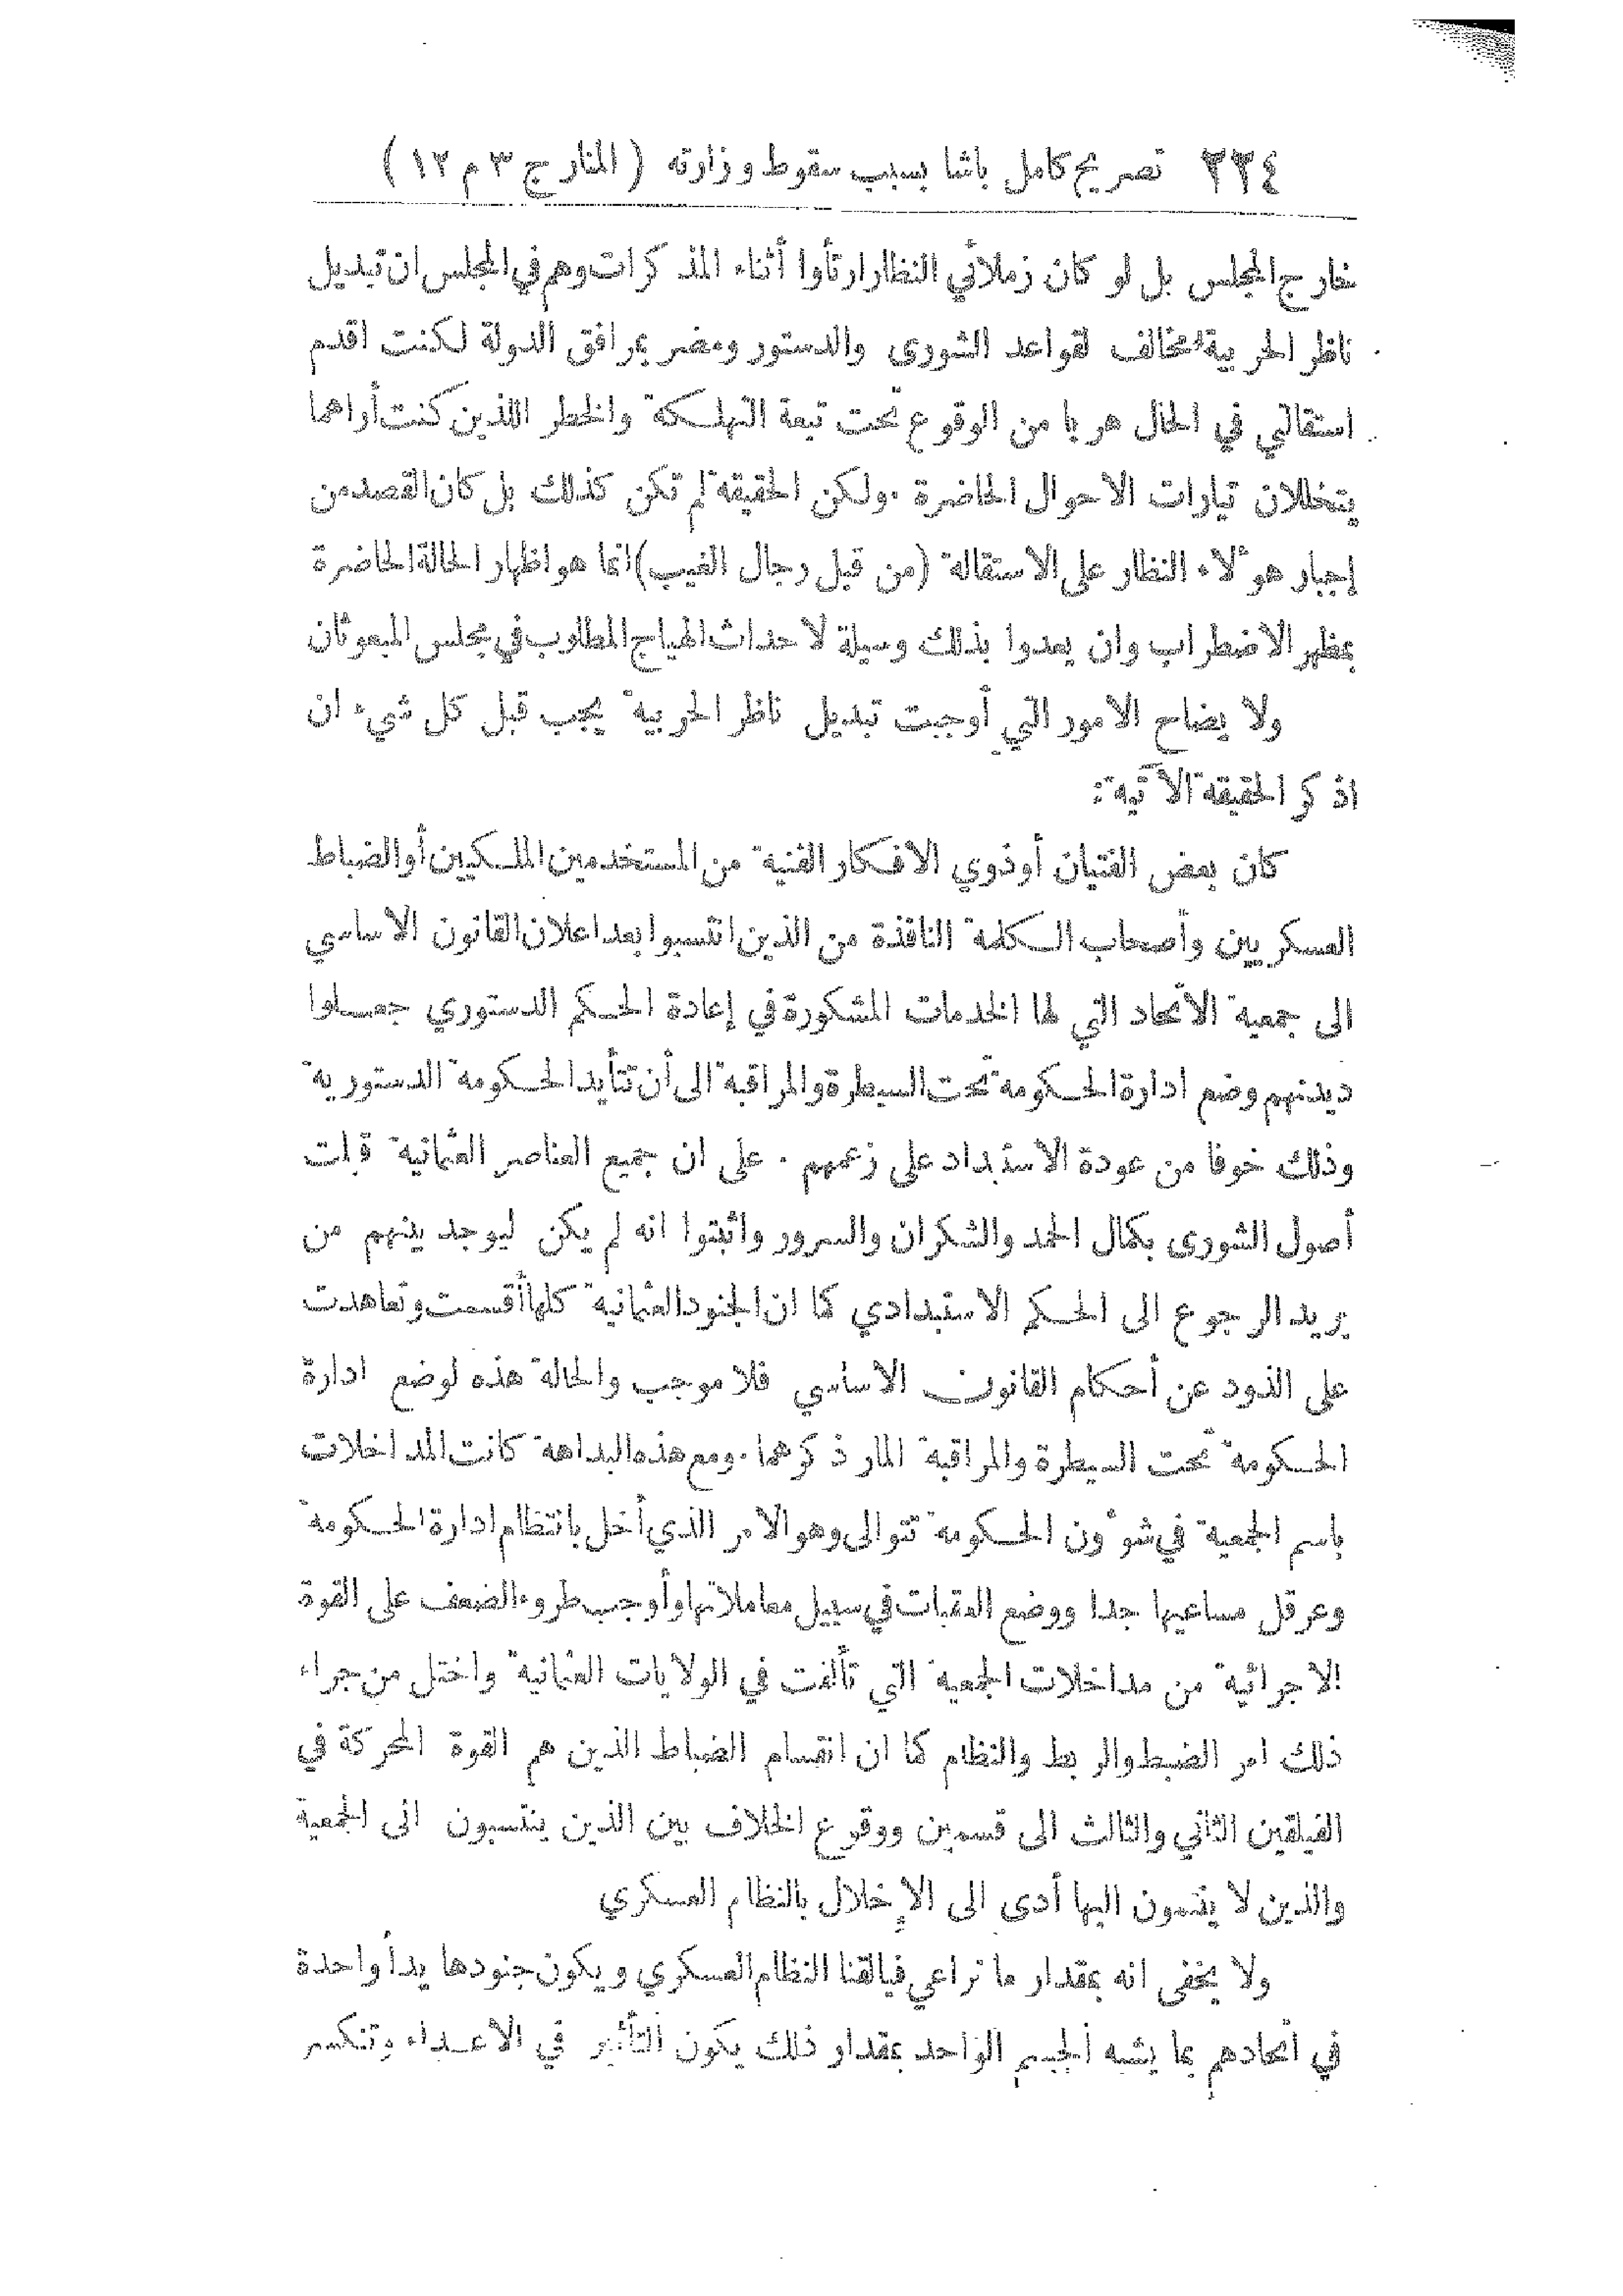 ٢٢٤ تصريح كامل باشا بسبب سقوط وزارته ( المنار ج ٣ م ١٢ )
خارج المجلس بل لو كان زملائي النظار ارتأوا أثناء المذ كرات وهم في المجلس ان تبديل
ناظر الحربية مخالف لقواعد الشورى والدستور ومضر بمرافق الدولة لكنت اقدم
استقالتي في الحال هربا من الوقوع تحت تبعة التهلكة والخطر اللذين كنت أراهما
يتخللان تيارات الاحوال الحاضرة . ولكن الحقيقة لم تكن كذلك بل كان القصد من
إجبار هؤلاء النظار على الاستقالة (من قبل رجال الغيب) انما هو اظهار الحالة الحاضرة
بمظهر الاضطراب وان يعدوا بذلك وسيلة لاحداث الهياج المطلوب في مجلس المبعوثان
ولا يضاح الامور التي أوجبت تبديل ناظر الحربية يجب قبل كل شيء ان
اذكر الحقيقة الآتية :
كان بعض الفتيان أو ذوي الافكار الفنية من المستخدمين الملكيين أو الضباط
العسكريين وأصحاب الكلمة النافذة من الذين انتسبوا بعد اعلان القانون الاساسي
الى جمعية الاتحاد التي لها الخدمات المشكورة في إعادة الحكم الدستوري جعلوا
ديدنهم وضع ادارة الحكومة تحت السيطرة والمراقبة الى أن تتأيد الحكومة الدستورية
وذلك خوفا من عودة الاستبداد على زعمهم . على ان جميع العناصر العثمانية قبلت
أصول الشورى بكمال الحمد والشكران والسرور واثبتوا انه لم يكن ليوجد بينهم من
يريد الرجوع الى الحكم الاستبدادي كما ان الجنود العثمانية كلها أقسمت وتعاهدت
على الذود عن أحكام القانون الاساسي فلا موجب والحالة هذه لوضع ادارة
الحكومة تحت السيطرة والمراقبة المار ذكرهما . ومع هذه البداهة كانت المداخلات
باسم الجمعية في شؤون الحكومة تتوالى وهو الامر الذي أخل بانتظام ادارة الحكومة
وعرقل مساعيها جدا ووضع العقبات في سبيل معاملاتها وأوجب طروء الضعف على القوة
الاجرائية من مداخلات الجمعية التي تألفت في الولايات العثمانية واختل من جراء
ذلك امر الضبط والربط والنظام كما ان انقسام الضباط الذين هم القوة المحركة في
الفيلقين الثاني والثالث الى قسمين ووقوع الخلاف بين الذين ينتسبون الى الجمعية
والذين لا ينتمون اليها أدى الى الإخلال بالنظام العسكري
ولا يخفى انه بمقدار ما تراعي فيالقنا النظام العسكري ويكون جنودها يداً واحدة
في اتحادهم بما يشبه الجسم الواحد بمقدار ذلك يكون التأثير في الاعداء وتنكسر